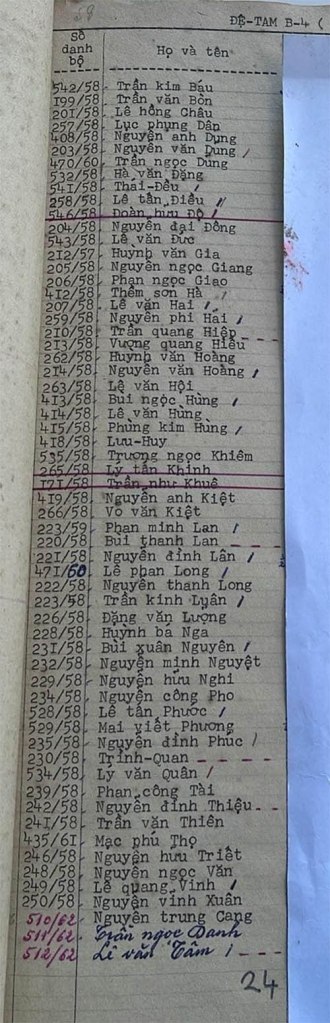 59
ĐỆ-TAM B-4 (
Số danh bộ
Họ và tên
542/58 Trần kim Báu
199/58 Trần văn Bồn
201/58 Lê hồng Châu
257/58 Lục phụng Dân
408/58 Nguyễn anh Dũng
203/58 Nguyễn văn Dung /
470/60 Trần ngọc Dũng
532/58 Hà văn Đặng
541/58 Thái-Đều /
258/58 Lê tấn Điều /
546/58 Đoàn hưu Độ /
204/58 Nguyễn đại Đồng
543/58 Lê văn Đức
212/57 Huỳnh văn Gia
205/58 Nguyễn ngọc Giang
206/58 Phan ngọc Giao
412/58 Thềm sơn Hà /
207/58 Lê văn Hai /
259/58 Nguyễn phi Hải /
210/58 Trần quang Hiệp
213/58 Vương quang Hiếu
262/58 Huỳnh văn Hoàng
214/58 Nguyễn văn Hoằng /
263/58 Lê văn Hội
413/58 Bùi ngọc Hùng /
414/58 Lê văn Hùng
415/58 Phùng kim Hùng /
418/58 Lưu-Huy
535/58 Trương ngọc Khiêm
265/58 Lý tấn Khinh
171/58 Trần như Khuê
419/58 Nguyễn anh Kiệt
266/58 Võ văn Kiệt
223/59 Phan minh Lan /
220/58 Bùi thanh Lan
221/58 Nguyễn đình Lân /
471/60 Lê phan Long /
222/58 Nguyễn thanh Long
223/58 Trần kinh Luân /
226/58 Đặng văn Lượng
228/58 Huỳnh bá Nga
231/58 Bùi xuân Nguyên /
232/58 Nguyễn minh Nguyệt
229/58 Nguyễn hữu Nghi
234/58 Nguyễn công Pho
528/58 Lê tấn Phước /
529/58 Mai viết Phương
235/58 Nguyễn đình Phúc /
230/58 Trịnh-Quan
534/58 Lý văn Quân /
239/58 Phan công Tài
242/58 Nguyễn đình Thiệu
241/58 Trần văn Thiên
435/61 Mạc phú Thọ
246/58 Nguyễn hưu Triết
248/58 Nguyễn ngọc Vân
249/58 Lê quang Vinh /
250/58 Nguyễn vinh Xuân
510/62 Nguyễn trung Cang
511/62 Trần ngọc Danh
512/62 Lê văn Tâm /
24